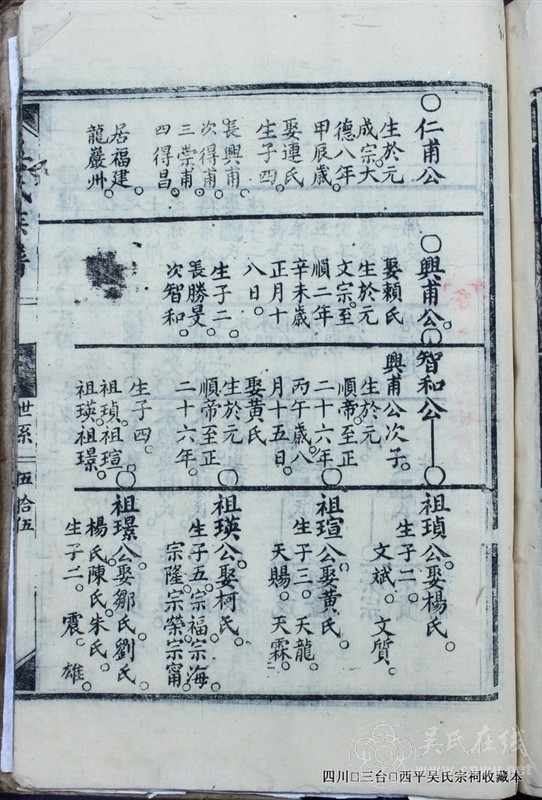 仁甫公
生於元
成宗大
德八年
甲辰歲
娶連氏
生子四
長興甫
次得甫
三崇甫
四得昌
居福建
龍巖州
興甫公
娶賴氏
生於元
文宗至
順二年
辛未歲
正月十
八日
生子二
長勝旻
次智和
智和公
興甫公次子
生於元
順帝至正
二十六年
丙午歲八
月十五日
娶黃氏
生於元
順帝至正
二十六年
生子四
祖瑱祖瑄
祖瑛祖璟
祖瑱公娶楊氏
生子二
文斌 文質
祖瑄公娶黃氏
生子三 天龍
天賜 天霖
祖瑛公娶柯氏
生子五宗福宗海
宗隆宗榮宗甯
祖璟公娶鄒氏劉氏
楊氏陳氏朱氏
生子二 震 雄
氏族譜
世系
五拾伍
吴氏在线
四川□三台□西平吴氏宗祠收藏本